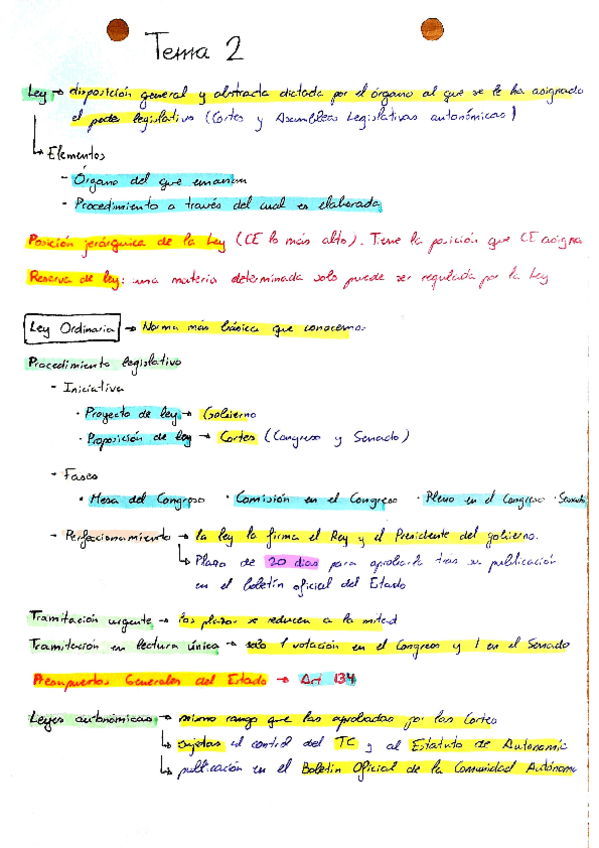 Tema 2
Ley → disposición general y abstracta dictada por el órgano al que se le ha asignado
el poder legislativo (Cortes y Asambleas Legislativas autonómicas)
↳ Elementos
- Órgano del que emanan
- Procedimiento a través del cual es elaborada
Posición jerárquica de la ley (CE lo más alto). Tiene la posición que CE asigna
Reserva de ley: una materia determinada solo puede ser regulada por la ley
Ley Ordinaria → Norma más básica que conocemos
Procedimiento legislativo
- Iniciativa
· Proyecto de ley → Gobierno
· Proposición de ley → Cortes (Congreso y Senado)
- Fases
· Mesa del Congreso · Comisión en el Congreso · Pleno en el Congreso · Senado
- Perfeccionamiento → la ley la firma el Rey y el Presidente del gobierno.
↳ Plazo de 20 días para aprobarla tras su publicación
en el boletín oficial del Estado
Tramitación urgente → los plazos se reducen a la mitad
Tramitación en lectura única → solo 1 votación en el Congreso y 1 en el Senado
Presupuestos Generales del Estado → Art 134
Leyes autonómicas → mismo rango que las aprobadas por las Cortes
↳ sujetas al control del TC y al Estatuto de Autonomía
↳ publicación en el Boletín Oficial de la Comunidad Autónoma